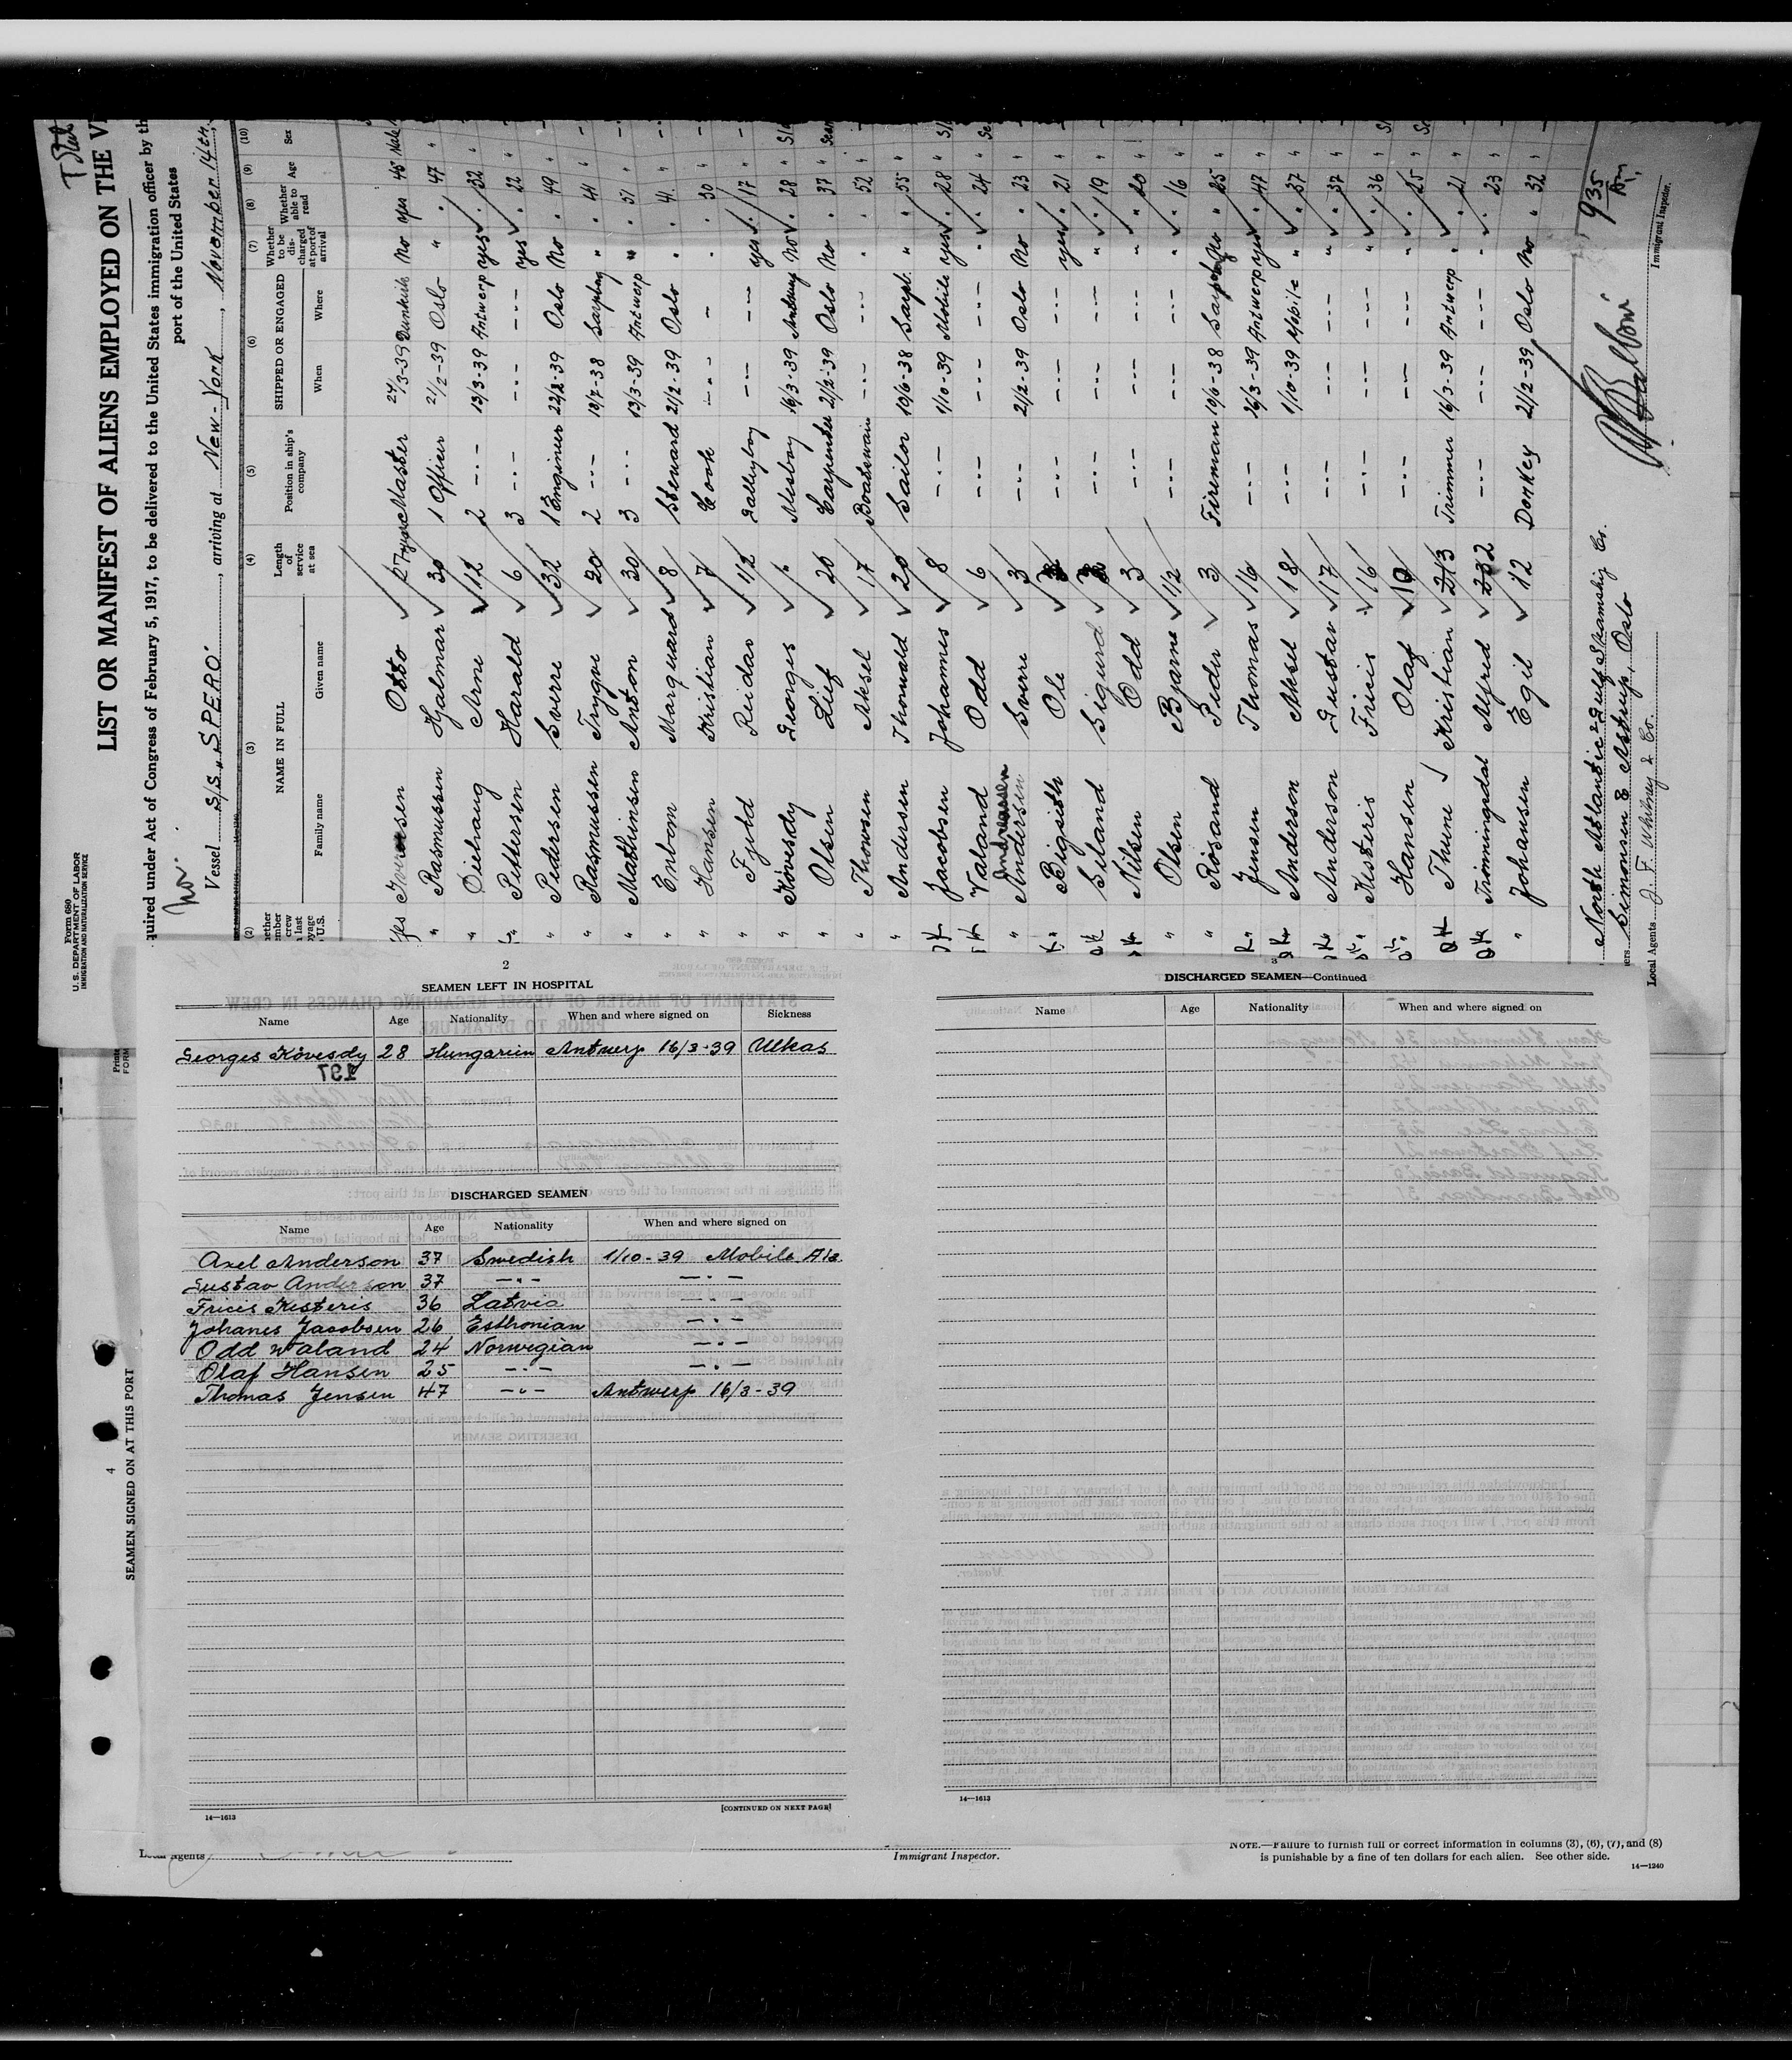 T
Form 680
U. S. DEPARTMENT OF LABOR
IMMIGRATION AND NATURALIZATION SERVICE
LIST OR MANIFEST OF ALIENS EMPLOYED ON THE
quired under Act of Congress of February 5, 1917, to be delivered to the United States immigration officer by th
port of the United States
Nor.
Vessel S/S. „SPERO", arriving at New-York, November 14th,
(2) (3) (4) (5) (6) (7) (8) (9) (10)
NAME IN FULL
Family name Given name
Length of service at sea
Position in ship's company
SHIPPED OR ENGAGED
When Where
Whether to be discharged at port of arrival
Whether able to read
Age
Sex
yes Iversen Otto 27 years Master 24/3-39 Dunkirk No yes 48 Male
" Rasmussen Hjalmar 30 1 Officer 21/2-39 Oslo " " 47 "
" Arne 12 2 -"- 13/3-39 Antwerp yes " 32 "
Pettersen Harald 6 3 -"- -"- yes " 22 "
" Pedersen Sverre 32 1 Engineer 22/2-39 Oslo No " 49 "
" Rasmussen Trygve 20 2 -"- 19/7-38 Sarpborg " " 44 "
" Mathinsen Anton 30 3 -"- 13/3-39 Antwerp " " 51 "
" Enbom Marquard 8 Steward 21/2-39 Oslo " " 41 "
" Hansen Kristian 7 Cook -"- - " " 30 "
" Reidar 1/2 Galleyboy -"- -"- yes " 17 "
" Kövesdy Georges Messboy 16/3-39 Antwerp No " 28 "
" Olsen Leif 20 Carpenter 21/2-39 Oslo No " 37
" Thowsen Aksel 17 Boatswain -"- -"- " " 52 "
" Andersen Thorvald 20 Sailor 10/6-38 Sarpb. " " 55 "
Jacobsen Johannes 8 -"- 1/10-39 Mobile yes " 28 "
Valand Odd 6 -"- -"- -"- " " 24 "
" Andreassen Andersen Sverre 3 -"- 21/2-39 Oslo No " 23 "
Ole -"- -"- -"- yes " 21 "
Seland Sigurd -"- -"- -"- " " 19 "
Nilsen Odd 3 -"- -"- -"- " " 20 "
" Olsen Bjarne 1/2 -"- -"- -"- " " 16 "
" Risand Peder 3 Fireman 10/6-38 No " 25 "
Jensen Thomas 16 -"- 16/3-39 Antwerp yes " 47 "
Anderson Aksel 18 -"- 1/10-39 Mobile " " 37 "
Anderson Gustav 17 -"- -"- -"- " " 37 "
Kesteris Fricis 16 -"- -"- -"- " " 36 "
Hansen Olaf 10 -"- -"- -"- " " 25 "
Thune Kristian Trimmer 16/3-39 Antwerp " " 21 "
Alfred -"- -"- -"- " " 23 "
" Johansen Egil 12 Donkey 21/2-39 Oslo No " 32 "
North Atlantic & Gulf Steamship Co.
Simonsen & Astrup, Oslo
Local Agents J. F. Whitney & Co.
Immigrant Inspector.
935
2
SEAMEN LEFT IN HOSPITAL
Name Age Nationality When and where signed on Sickness
Georges Kövesdy 28 Hungarien Antwerp 16/3-39 Ulkas
197
DISCHARGED SEAMEN
Name Age Nationality When and where signed on
Axel Anderson 37 Swedish 1/10-39 Mobile Ala
Gustav Anderson 37 -"- -"-
Frices Kesteris 36 Latvia -"-
Johanes Jacobsen 26 Esthonian -"-
Odd Waland 24 Norwegian -"-
Olaf Hansen 25 -"- -"-
Thomas Jensen 47 -"- Antwerp 16/3-39
14—1613
[CONTINUED ON NEXT PAGE]
3
DISCHARGED SEAMEN—Continued
Name Age Nationality When and where signed on
14—1613
4
SEAMEN SIGNED ON AT THIS PORT
Local Agents
Immigrant Inspector.
NOTE.—Failure to furnish full or correct information in columns (3), (6), (7), and (8)
is punishable by a fine of ten dollars for each alien. See other side.
14—1240